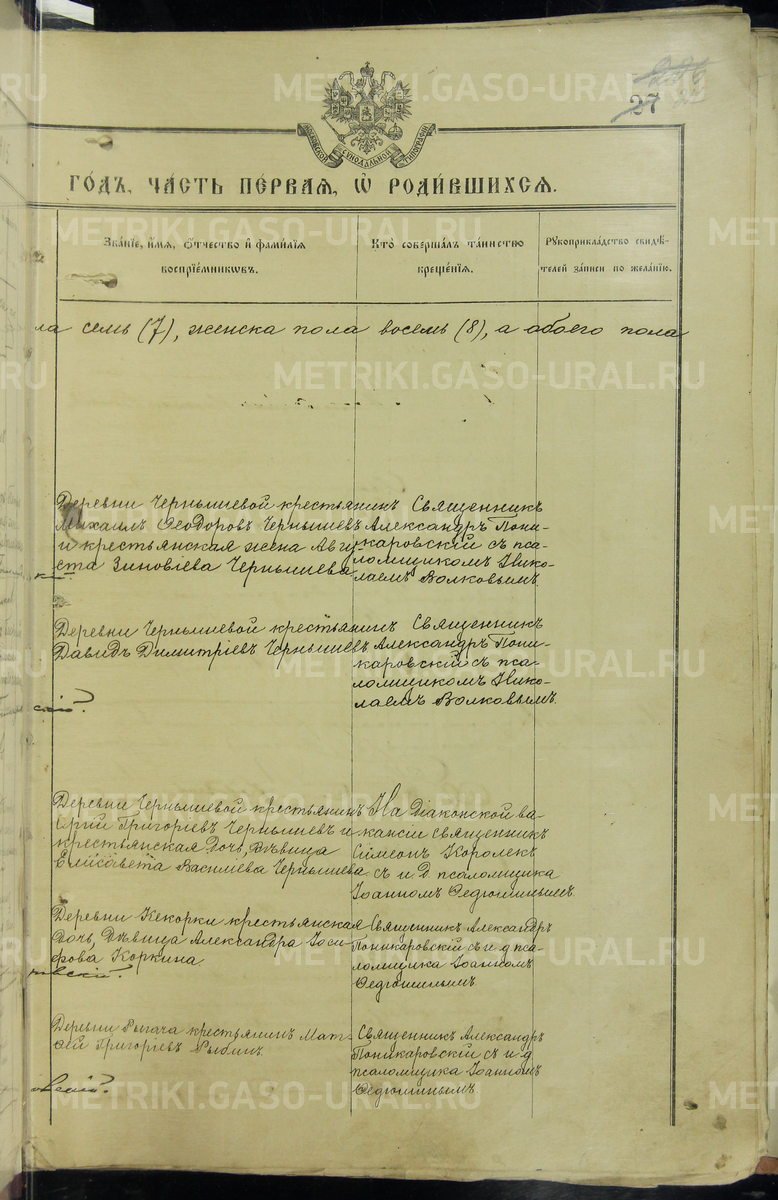 27
МОСКОВСКОЙ СѴНОДАЛЬНОЙ ТИПОГРАФІИ
ГО́ДЪ, ЧА́СТЬ ПЕ́РВАЯ, Ѿ РОДИ́ВШИХСЯ.
Зва́нїе, и́мя, ѻ҆́тчество и҆ фамилїя
воспрїе́мникѡвъ.
Кто̀ соверша́лъ та́инство
креще́нїя.
Рꙋкоприкла́дство свидѣ́-
телей за́писи по жела́нїю.
ла семь (7), женска пола восемь (8), а обоего пола
Деревни Чернышевой крестьянинъ
Михаилъ Ѳеодоровъ Чернышевъ
и крестьянская жена Авгу-
ста Зиновіева Чернышева
Священникъ
Александръ Пони-
каровскій съ пса-
ломщикомъ Нико-
лаемъ Волковымъ.
Деревни Чернышевой крестьянинъ
Давидъ Димитріевъ Чернышевъ
Священникъ
Александръ Пони-
каровскій съ пса-
ломщикомъ Нико-
лаемъ Волковымъ.
скій.
Деревни Чернышевой крестьянинъ
Григоріевъ Чернышевъ и
крестьянская дочь, дѣвица
Елисавета Василіева Чернышева
На діаконской ва-
кансіи священникъ
Симеонъ Королекъ
съ и. д. псаломщика
Іоанномъ Ѳедюшинымъ
Деревни Кекорки крестьянская
дочь, дѣвица Александра Іоси-
фова Коркина
Священникъ Александръ
Поникаровскій съ и. д. пса-
ломщика Іоанномъ
Ѳедюшинымъ
овскій.
Деревни Рычача крестьянинъ Мат-
ѳей Григоріевъ Рыбинъ
Священникъ Александръ
Поникаровскій съ и. д.
псаломщика Іоанномъ
Ѳедюшинымъ.
овскій.
METRIKI.GASO-URAL.RU